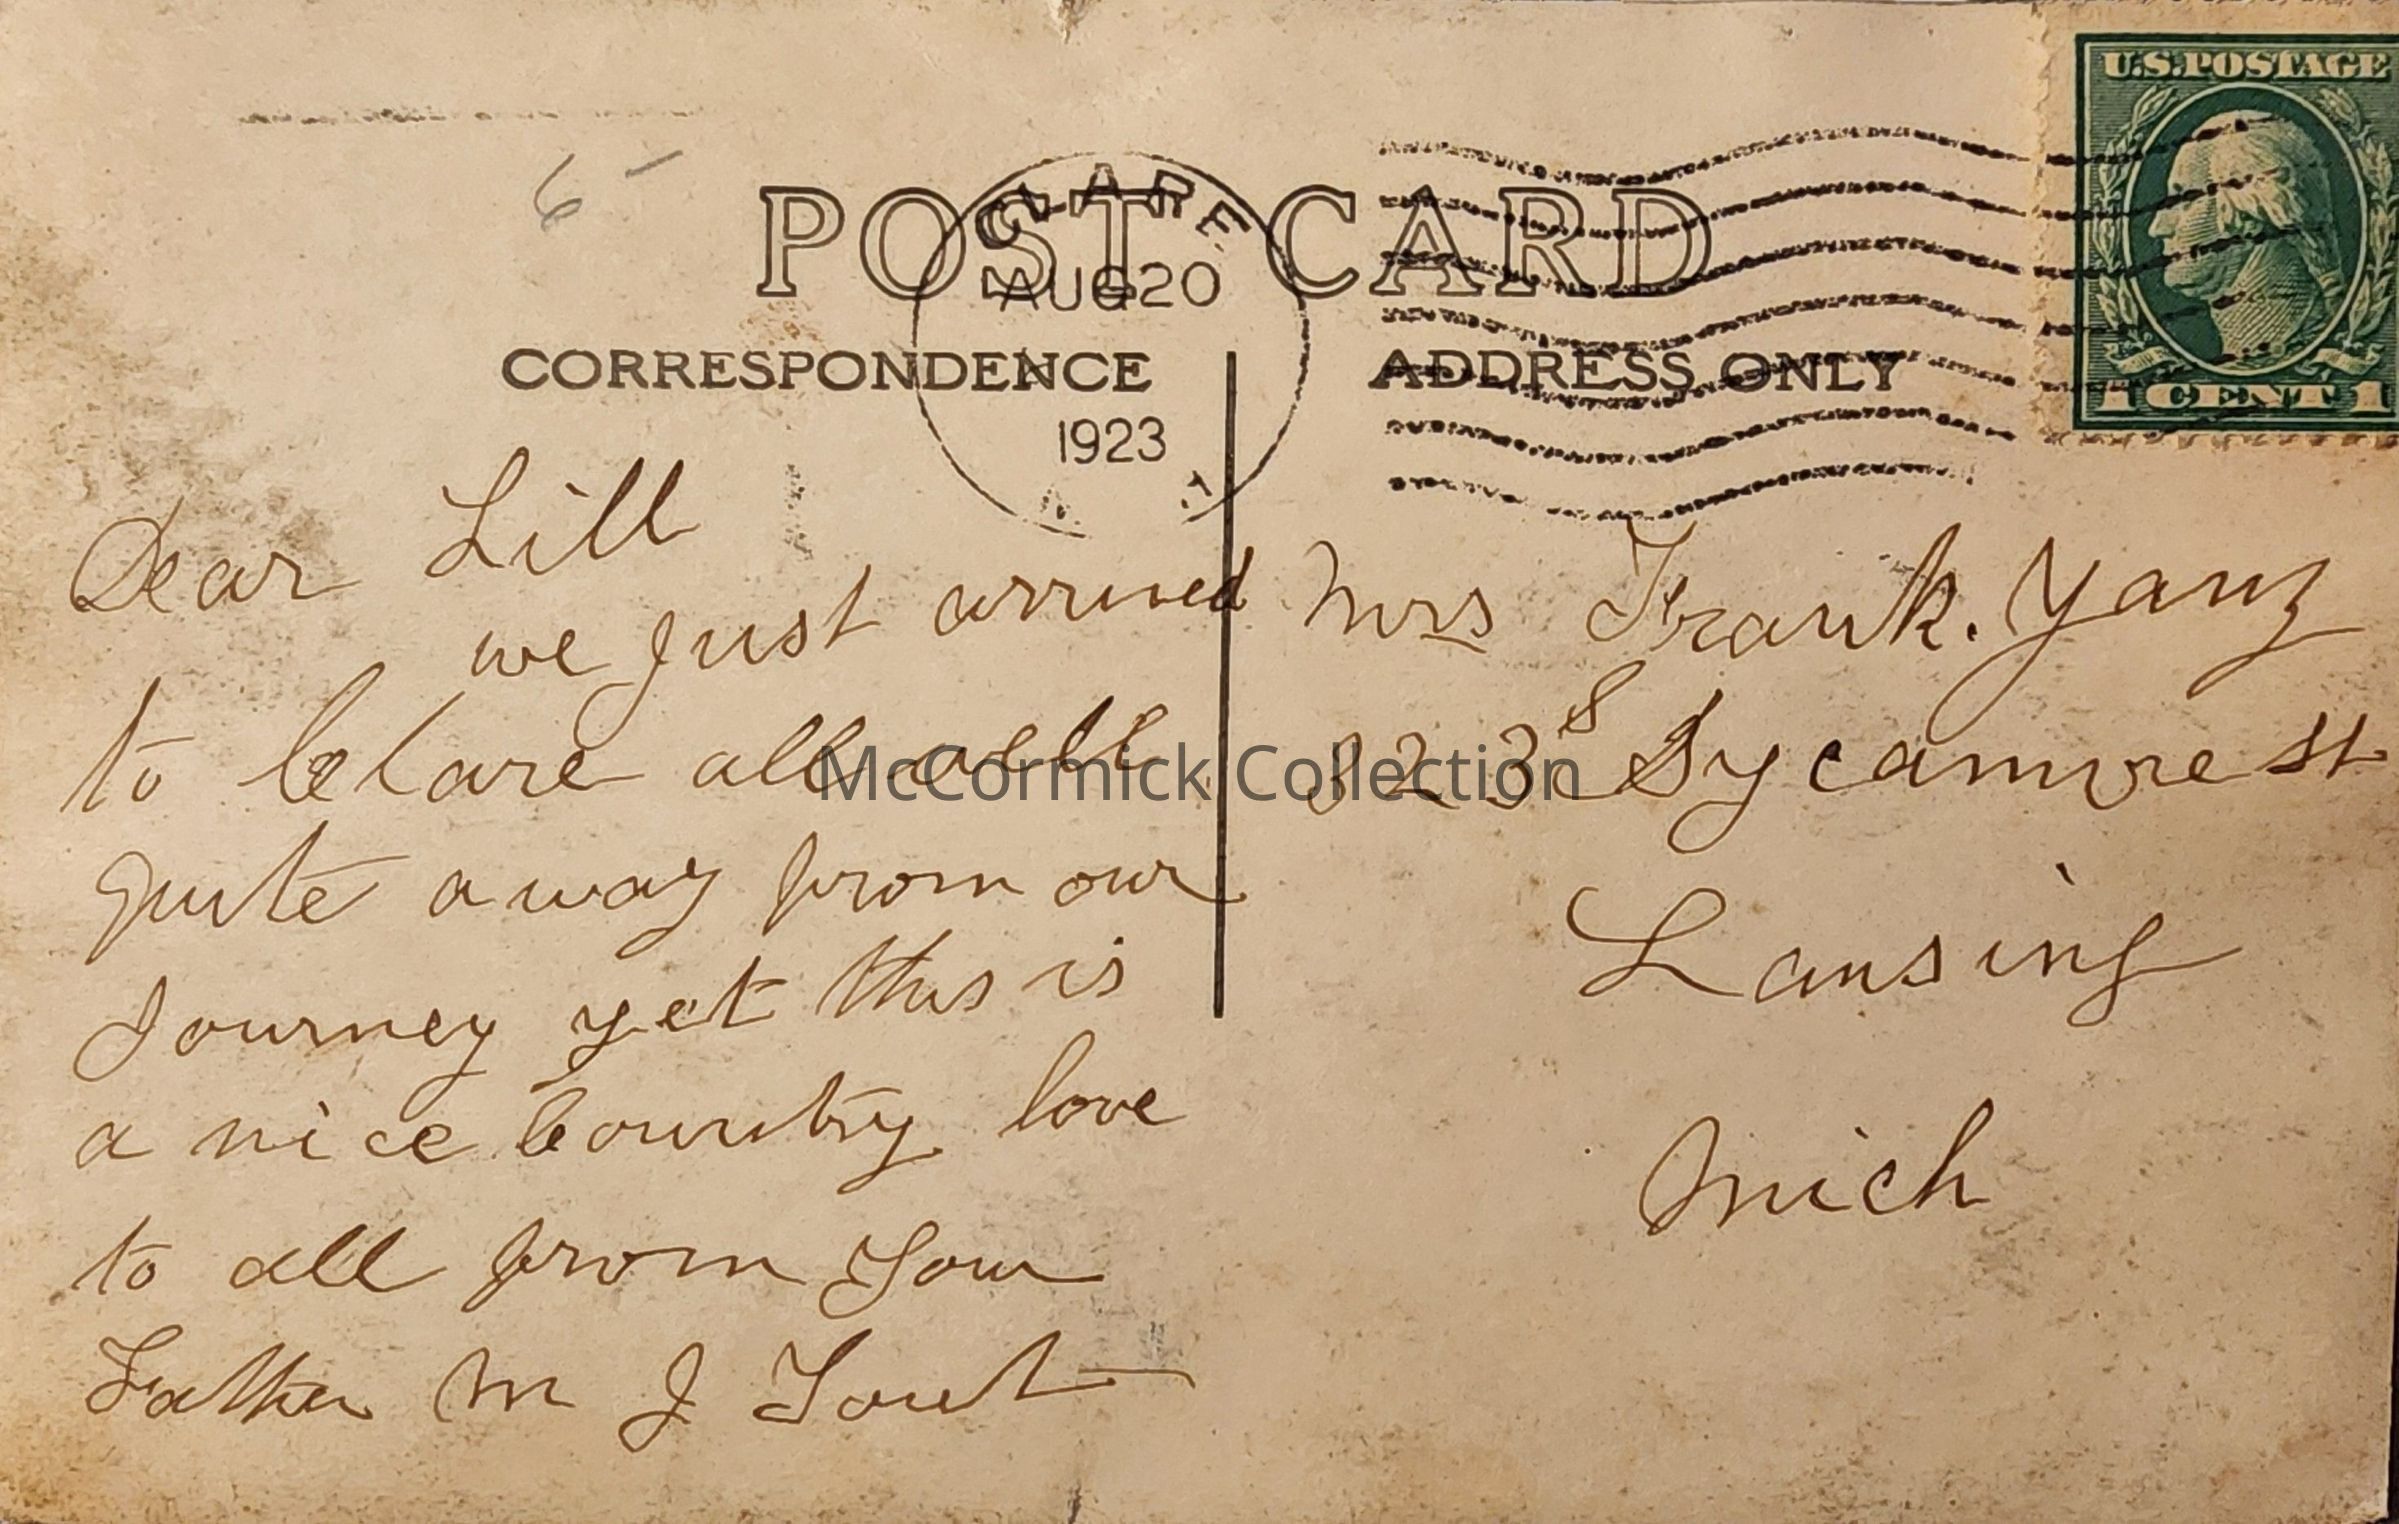 U.S. POSTAGE
1 CENT 1
6 –
POST CARD
CLARE
AUG 20
1923
CORRESPONDENCE
ADDRESS ONLY
Dear Lill
we Just arrived
to Clare all well
quite a way from our
Journey yet this is
a nice Country love
to all from Your
Father M J
Mrs Frank. Yanz
323 S Sycamore st
Lansing
Mich
McCormick Collection